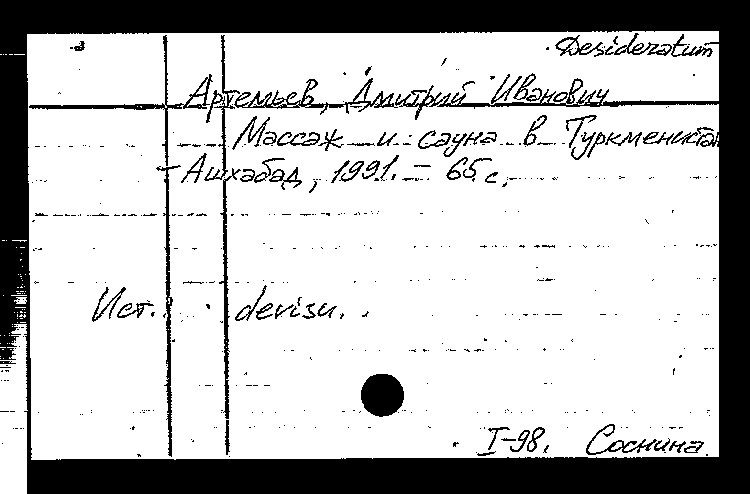 Desideratum
Артемьев, Дмитрий Иванович
Массаж и сауна в Туркменистан
- Ашхабад, 1991. - 65 с.
Ист. devisu.
I-98. Соснина